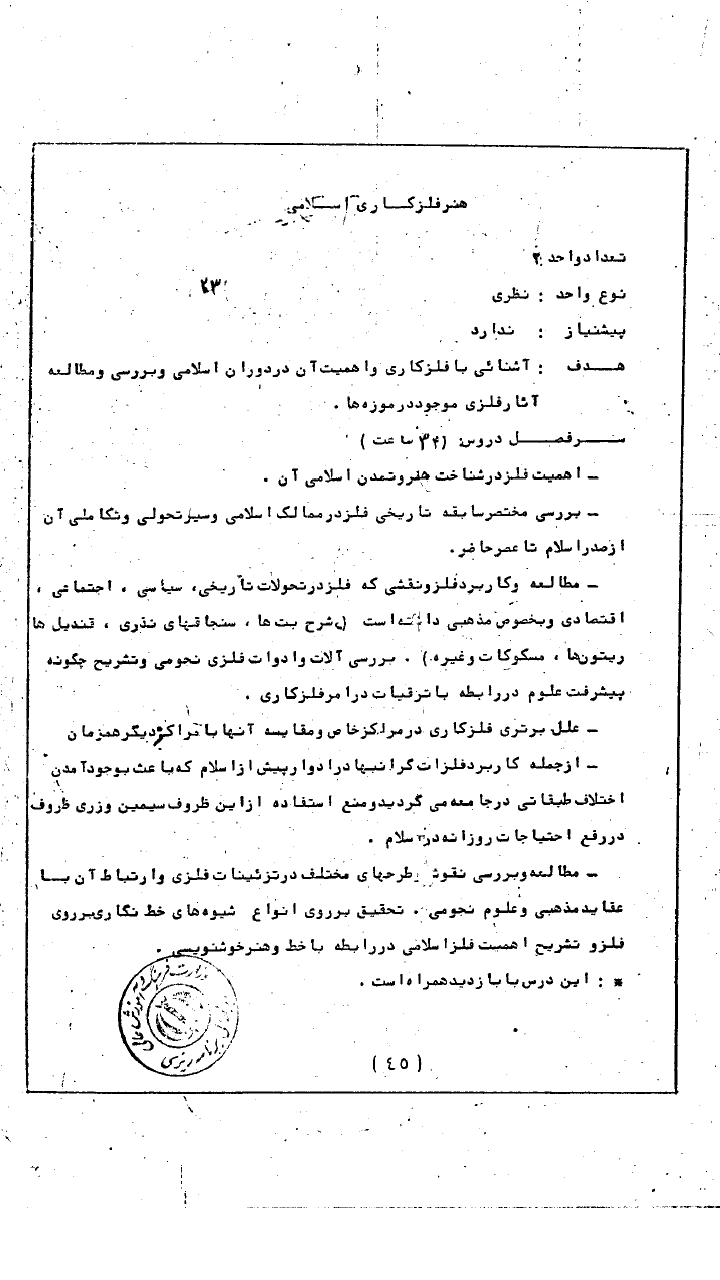 هنر فلزکاری اسلامی
تعداد واحد : ۲
۲۳
نوع واحد : نظری
پیشنیاز : ندارد
هدف : آشنائی با فلزکاری و اهمیت آن در دوران اسلامی و بررسی و مطالعه
آثار فلزی موجود در موزه‌ها .
سرفصل دروس: (۳۴ ساعت )
ـ اهمیت فلز در شناخت هنر و تمدن اسلامی آن .
ـ بررسی مختصر سابقه تاریخی فلز در ممالک اسلامی و سیر تحولی و تکاملی آن
از صدر اسلام تا عصر حاضر .
ـ مطالعه و کاربرد فلز و نقشی که فلز در تحولات تأریخی، سیاسی ، اجتماعی ،
اقتصادی و بخصوص مذهبی داشته است (شرح بت‌ها ، سنجاقهای نذری ، قندیل ها
ریتون‌ها ، مسکوکات و غیره ) . بررسی آلات و ادوات فلزی نجومی و تشریح چگونه
پیشرفت علوم در رابطه با ترقیات در امر فلزکاری .
ـ علل برتری فلزکاری در مراکز خاص و مقایسه آنها با مراکز دیگر همزمان
ـ از جمله کاربرد فلزات گرانبها در ادوار پیش از اسلام که باعث بوجود آمدن
اختلاف طبقاتی در جامعه می گردید و منع استفاده از این ظروف سیمین و زری ظروف
در رفع احتیاجات روزانه در اسلام .
ـ مطالعه و بررسی نقوش طرحهای مختلف در تزئینات فلزی و ارتباط آن بــا
عقاید مذهبی و علوم نجومی . تحقیق بر روی انواع شیوه‌های خط نگاری بر روی
فلز و تشریح اهمیت فلز اسلامی در رابطه با خط و هنر خوشنویسی .
* : این درس با بازدید همراه است .
وزارت فرهنگ و آموزش عالی
برنامه ریزی
( ٤٥ )